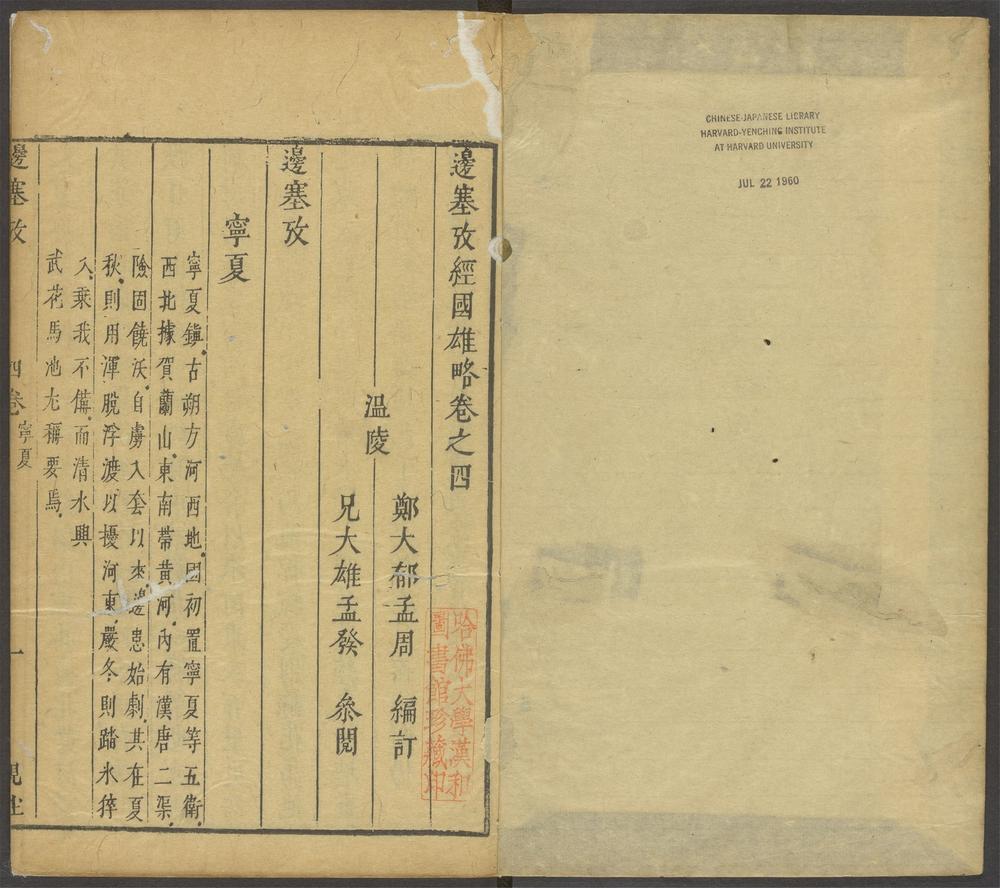 CHINESE-JAPANESE LIBRARY
HARVARD-YENCHING INSTITUTE
AT HARVARD UNIVERSITY
JUL 22 1960
邊塞攷經國雄略卷之四
溫陵
鄭大郁孟周 編訂
兄大雄孟發 叅閱
邊塞攷
寧夏
寧夏鎮古朔方河西地國初置寧夏等五衛
西北據賀蘭山東南帶黃河內有漢唐二渠
險固饒沃自虜入套以來邊患始劇其在夏
秋則用渾脫浮渡以擾河東嚴冬則踏氷猝
入乘我不備而清水興
武花馬池尤稱要焉
邊塞攷 四卷 寧夏 一
哈佛大學漢和
圖書館珍藏印